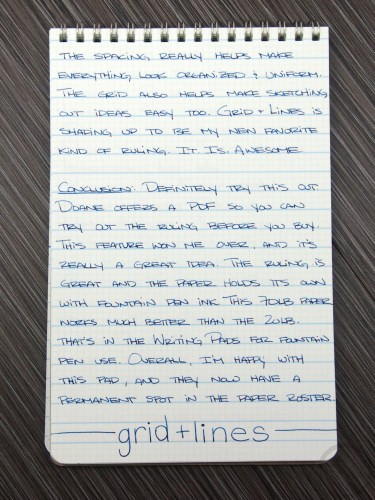 THE SPACING REALLY HELPS MAKE
EVERYTHING LOOK ORGANIZED & UNIFORM.
THE GRID ALSO HELPS MAKE SKETCHING
OUT IDEAS EASY TOO. GRID + LINES IS
SHAPING UP TO BE MY NEW FAVORITE
KIND OF RULING. IT. IS. AWESOME
CONCLUSION: DEFINITELY TRY THIS OUT
DOANE OFFERS A PDF SO YOU CAN
TRY OUT THE RULING BEFORE YOU BUY.
THIS FEATURE WON ME OVER, AND IT'S
REALLY A GREAT IDEA. THE RULING IS
GREAT AND THE PAPER HOLDS ITS OWN
WITH FOUNTAIN PEN INK. THIS 70LB PAPER
WORKS MUCH BETTER THAN THE 20LB.
THAT'S IN THE WRITING PADS FOR FOUNTAIN
PEN USE. OVERALL, I'M HAPPY WITH
THIS PAD, AND THEY NOW HAVE A
PERMANENT SPOT IN THE PAPER ROSTER.
grid+lines